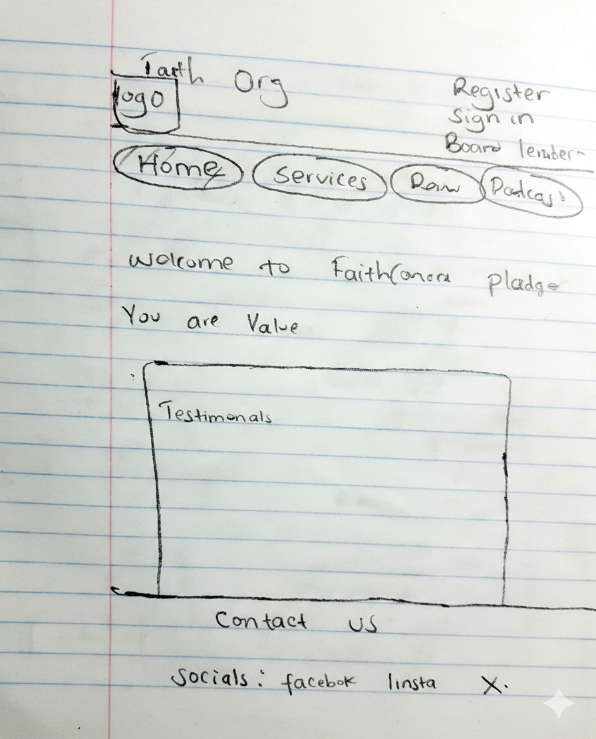 Faith Org
logo
Register
Sign in
Board
Home Services Podcast
Welcome to
You are Value
Testimonals
Contact us
Socials: facebok Iinsta X.